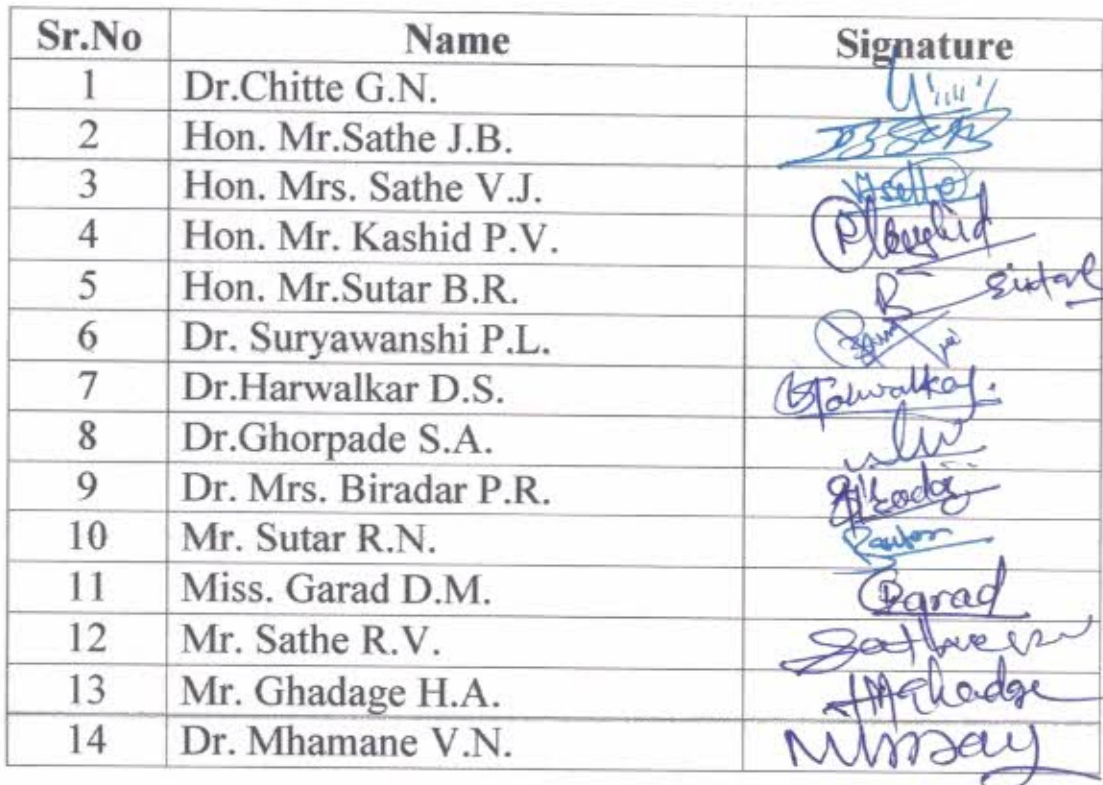 Sr.No Name Signature
1 Dr.Chitte G.N.
2 Hon. Mr.Sathe J.B. JBSathe
3 Hon. Mrs. Sathe V.J.
4 Hon. Mr. Kashid P.V. PKashid
5 Hon. Mr.Sutar B.R. B Sutar
6 Dr. Suryawanshi P.L.
7 Dr.Harwalkar D.S.
8 Dr.Ghorpade S.A.
9 Dr. Mrs. Biradar P.R.
10 Mr. Sutar R.N.
11 Miss. Garad D.M. Dgarad
12 Mr. Sathe R.V.
13 Mr. Ghadage H.A.
14 Dr. Mhamane V.N.